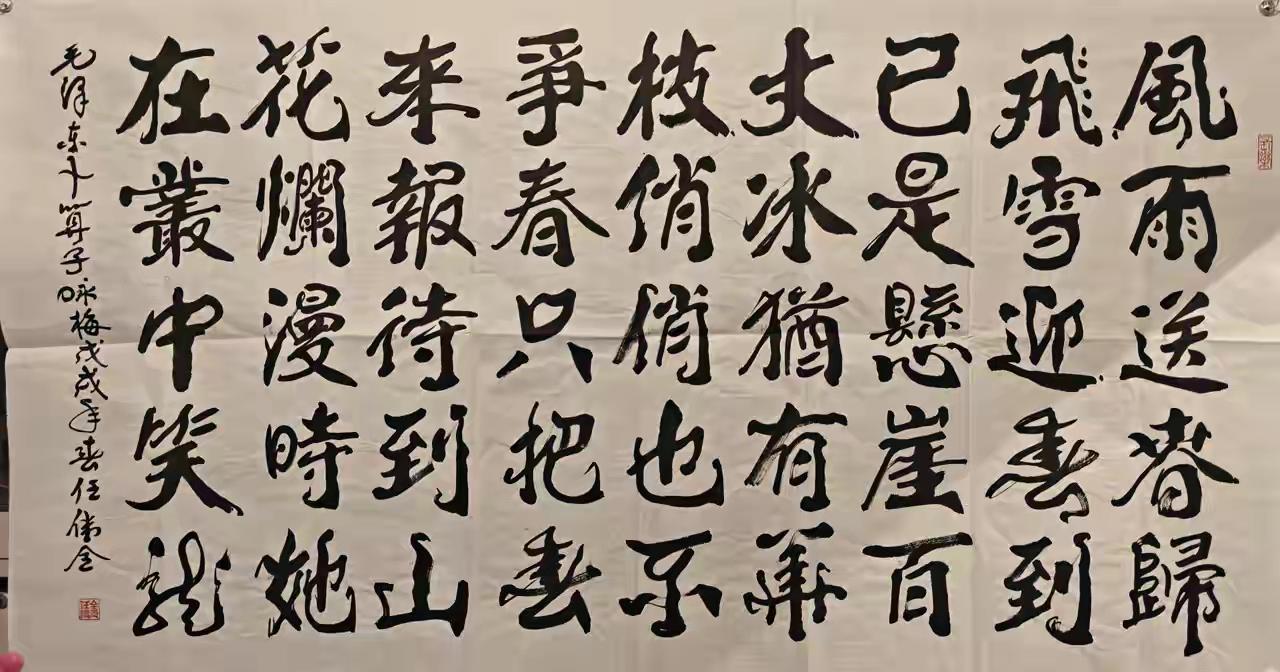 風雨送春歸
飛雪迎春到
已是懸崖百
丈冰猶有華
枝俏俏也不
爭春只把春
來報待到山
花爛漫時她
在叢中笑
毛泽东卜算子咏梅戊戌年春任伟全